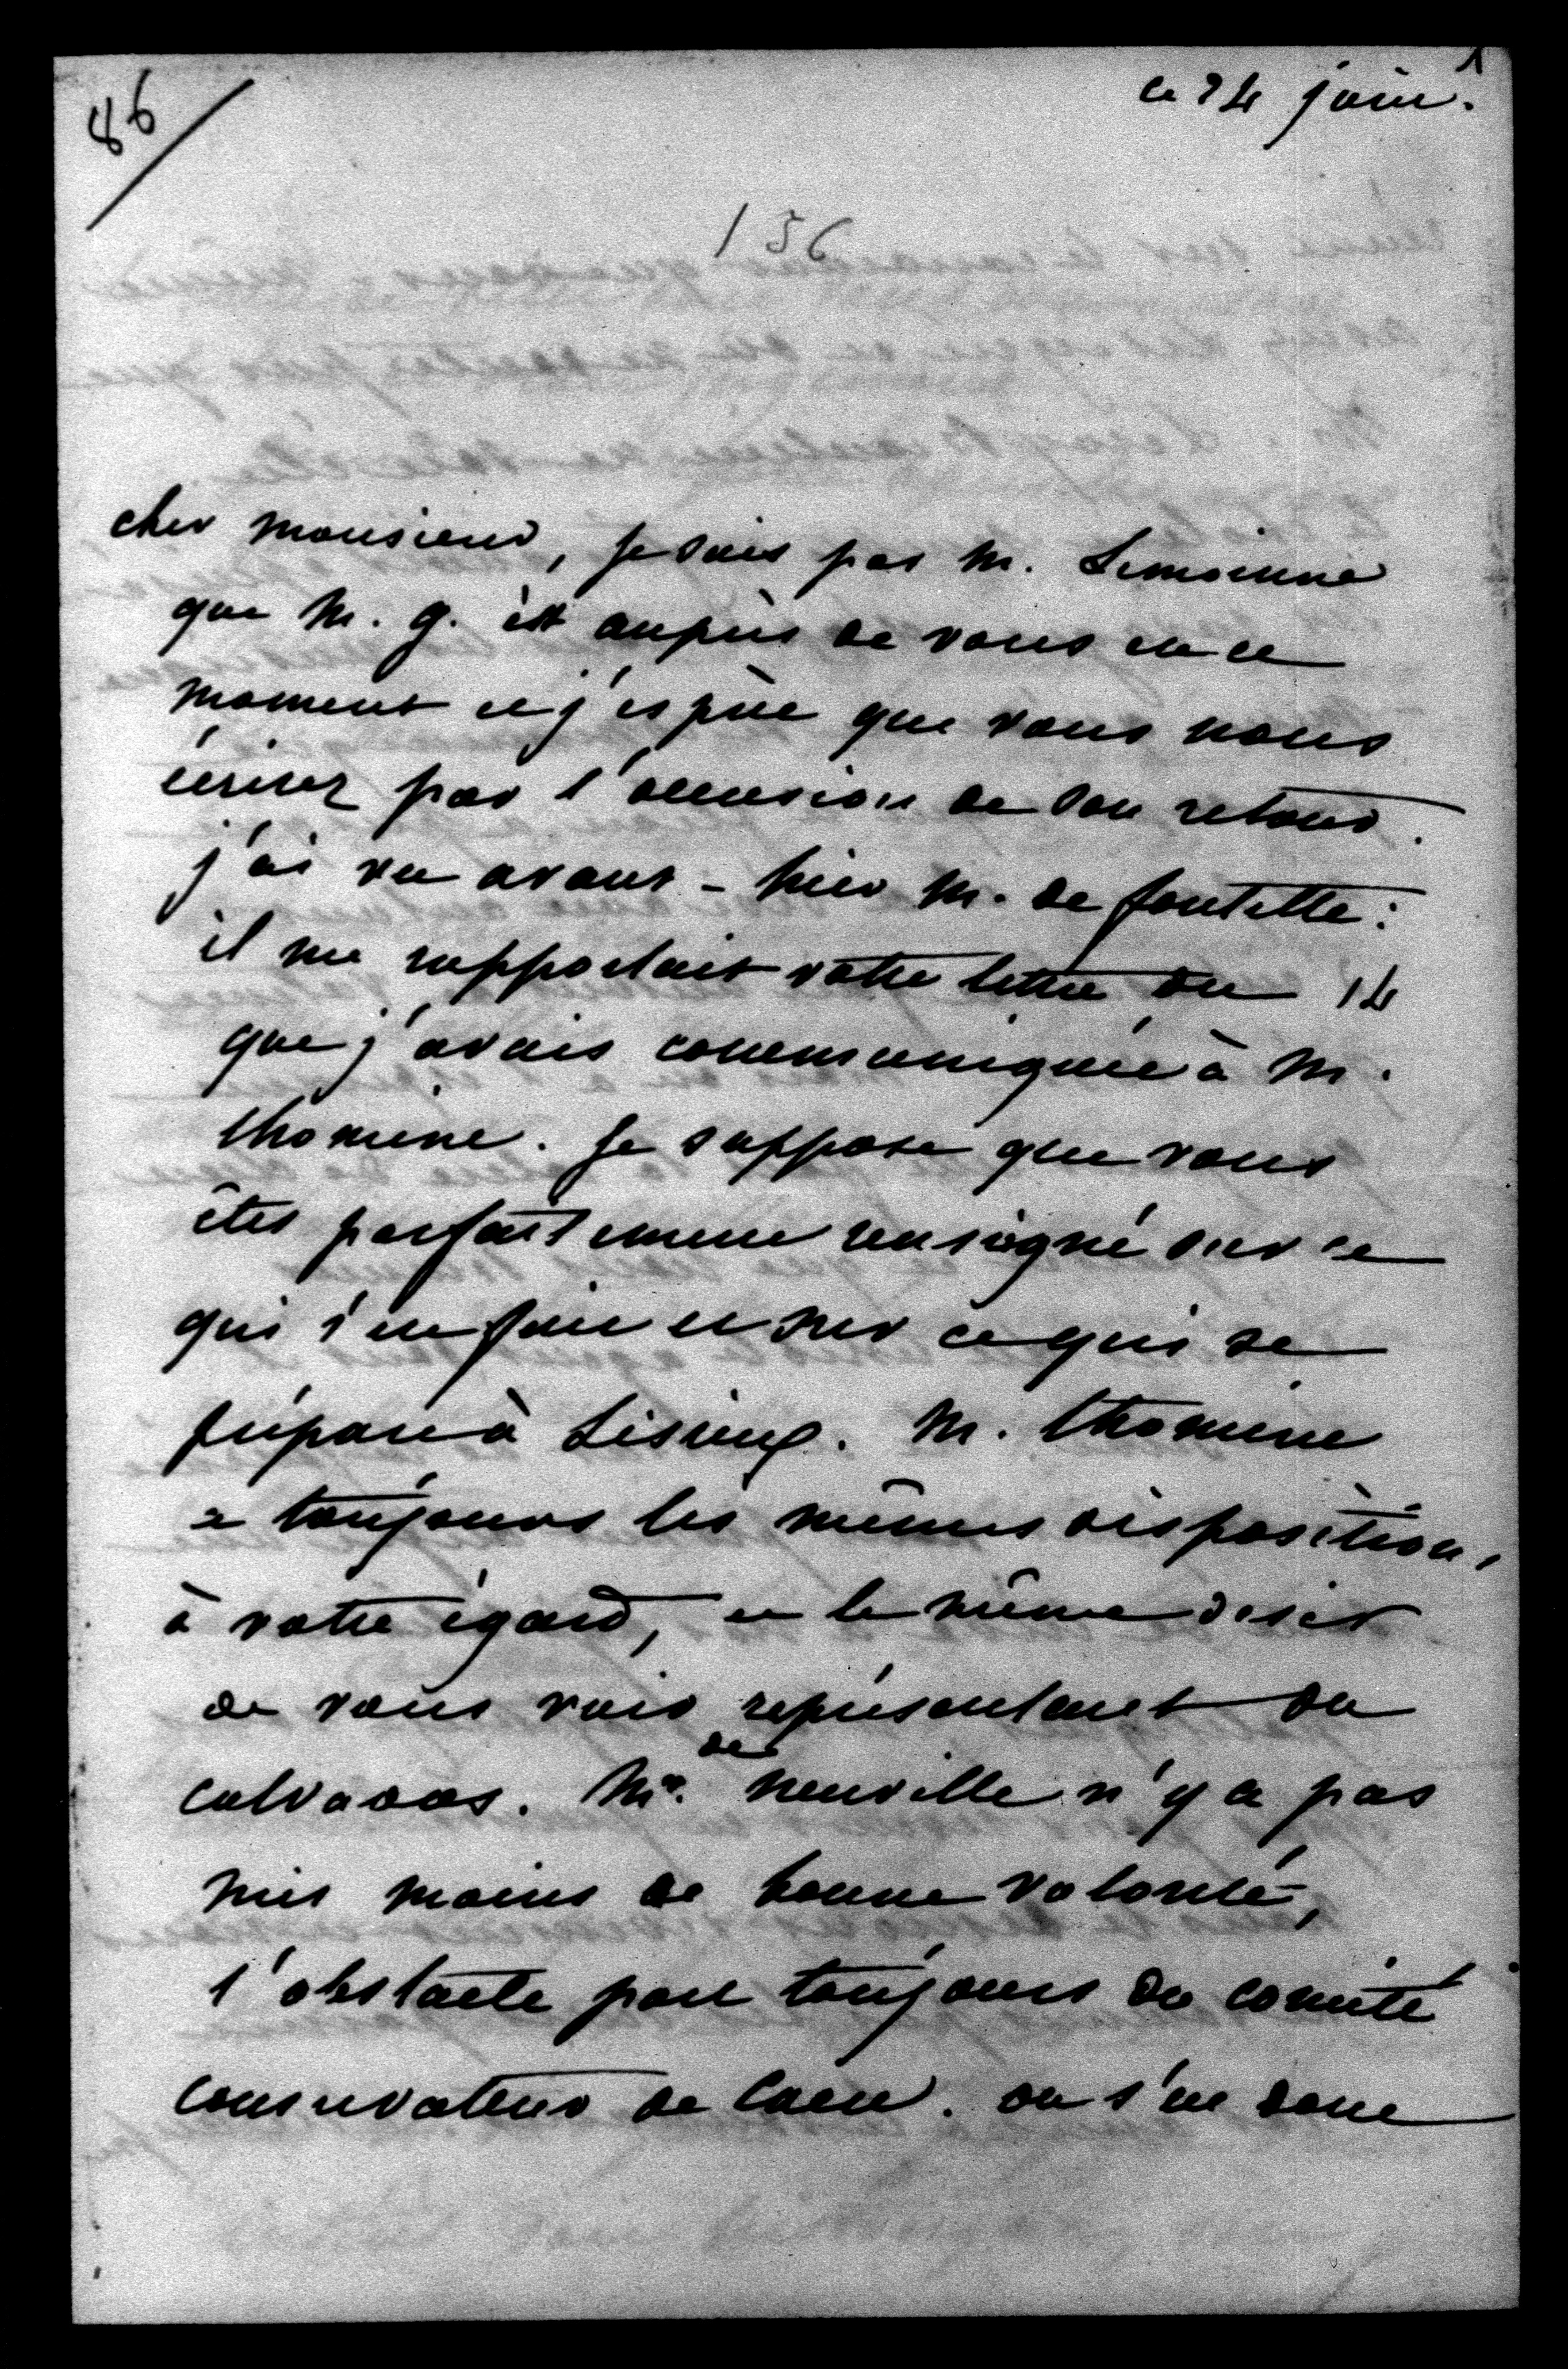 86
1
ce 24 juin.
156
cher monsieur, je sais par M. Lemoinne
que M. G. est auprès de vous en ce
moment et j'espère que vous nous
écrirez par l'occasion de son retour.
j'ai vu avant-hier M. de fontette :
il me rapportait votre lettre du 14
que j'avais communiquée à M.
thomine. Je suppose que vous
êtes parfaitement renseigné sur ce
qui s'en fait et sur ce qui se
prépare à Lisieux. M. thomine
a toujours les mêmes dispositions,
à votre égard, et le même désir
de vous voir représentant du
calvados. Mr. de Neuville n'y a pas
mis moins de bonne volonté,
l'obstacle part toujours du comité
conservateur de Caen. on s'en donne